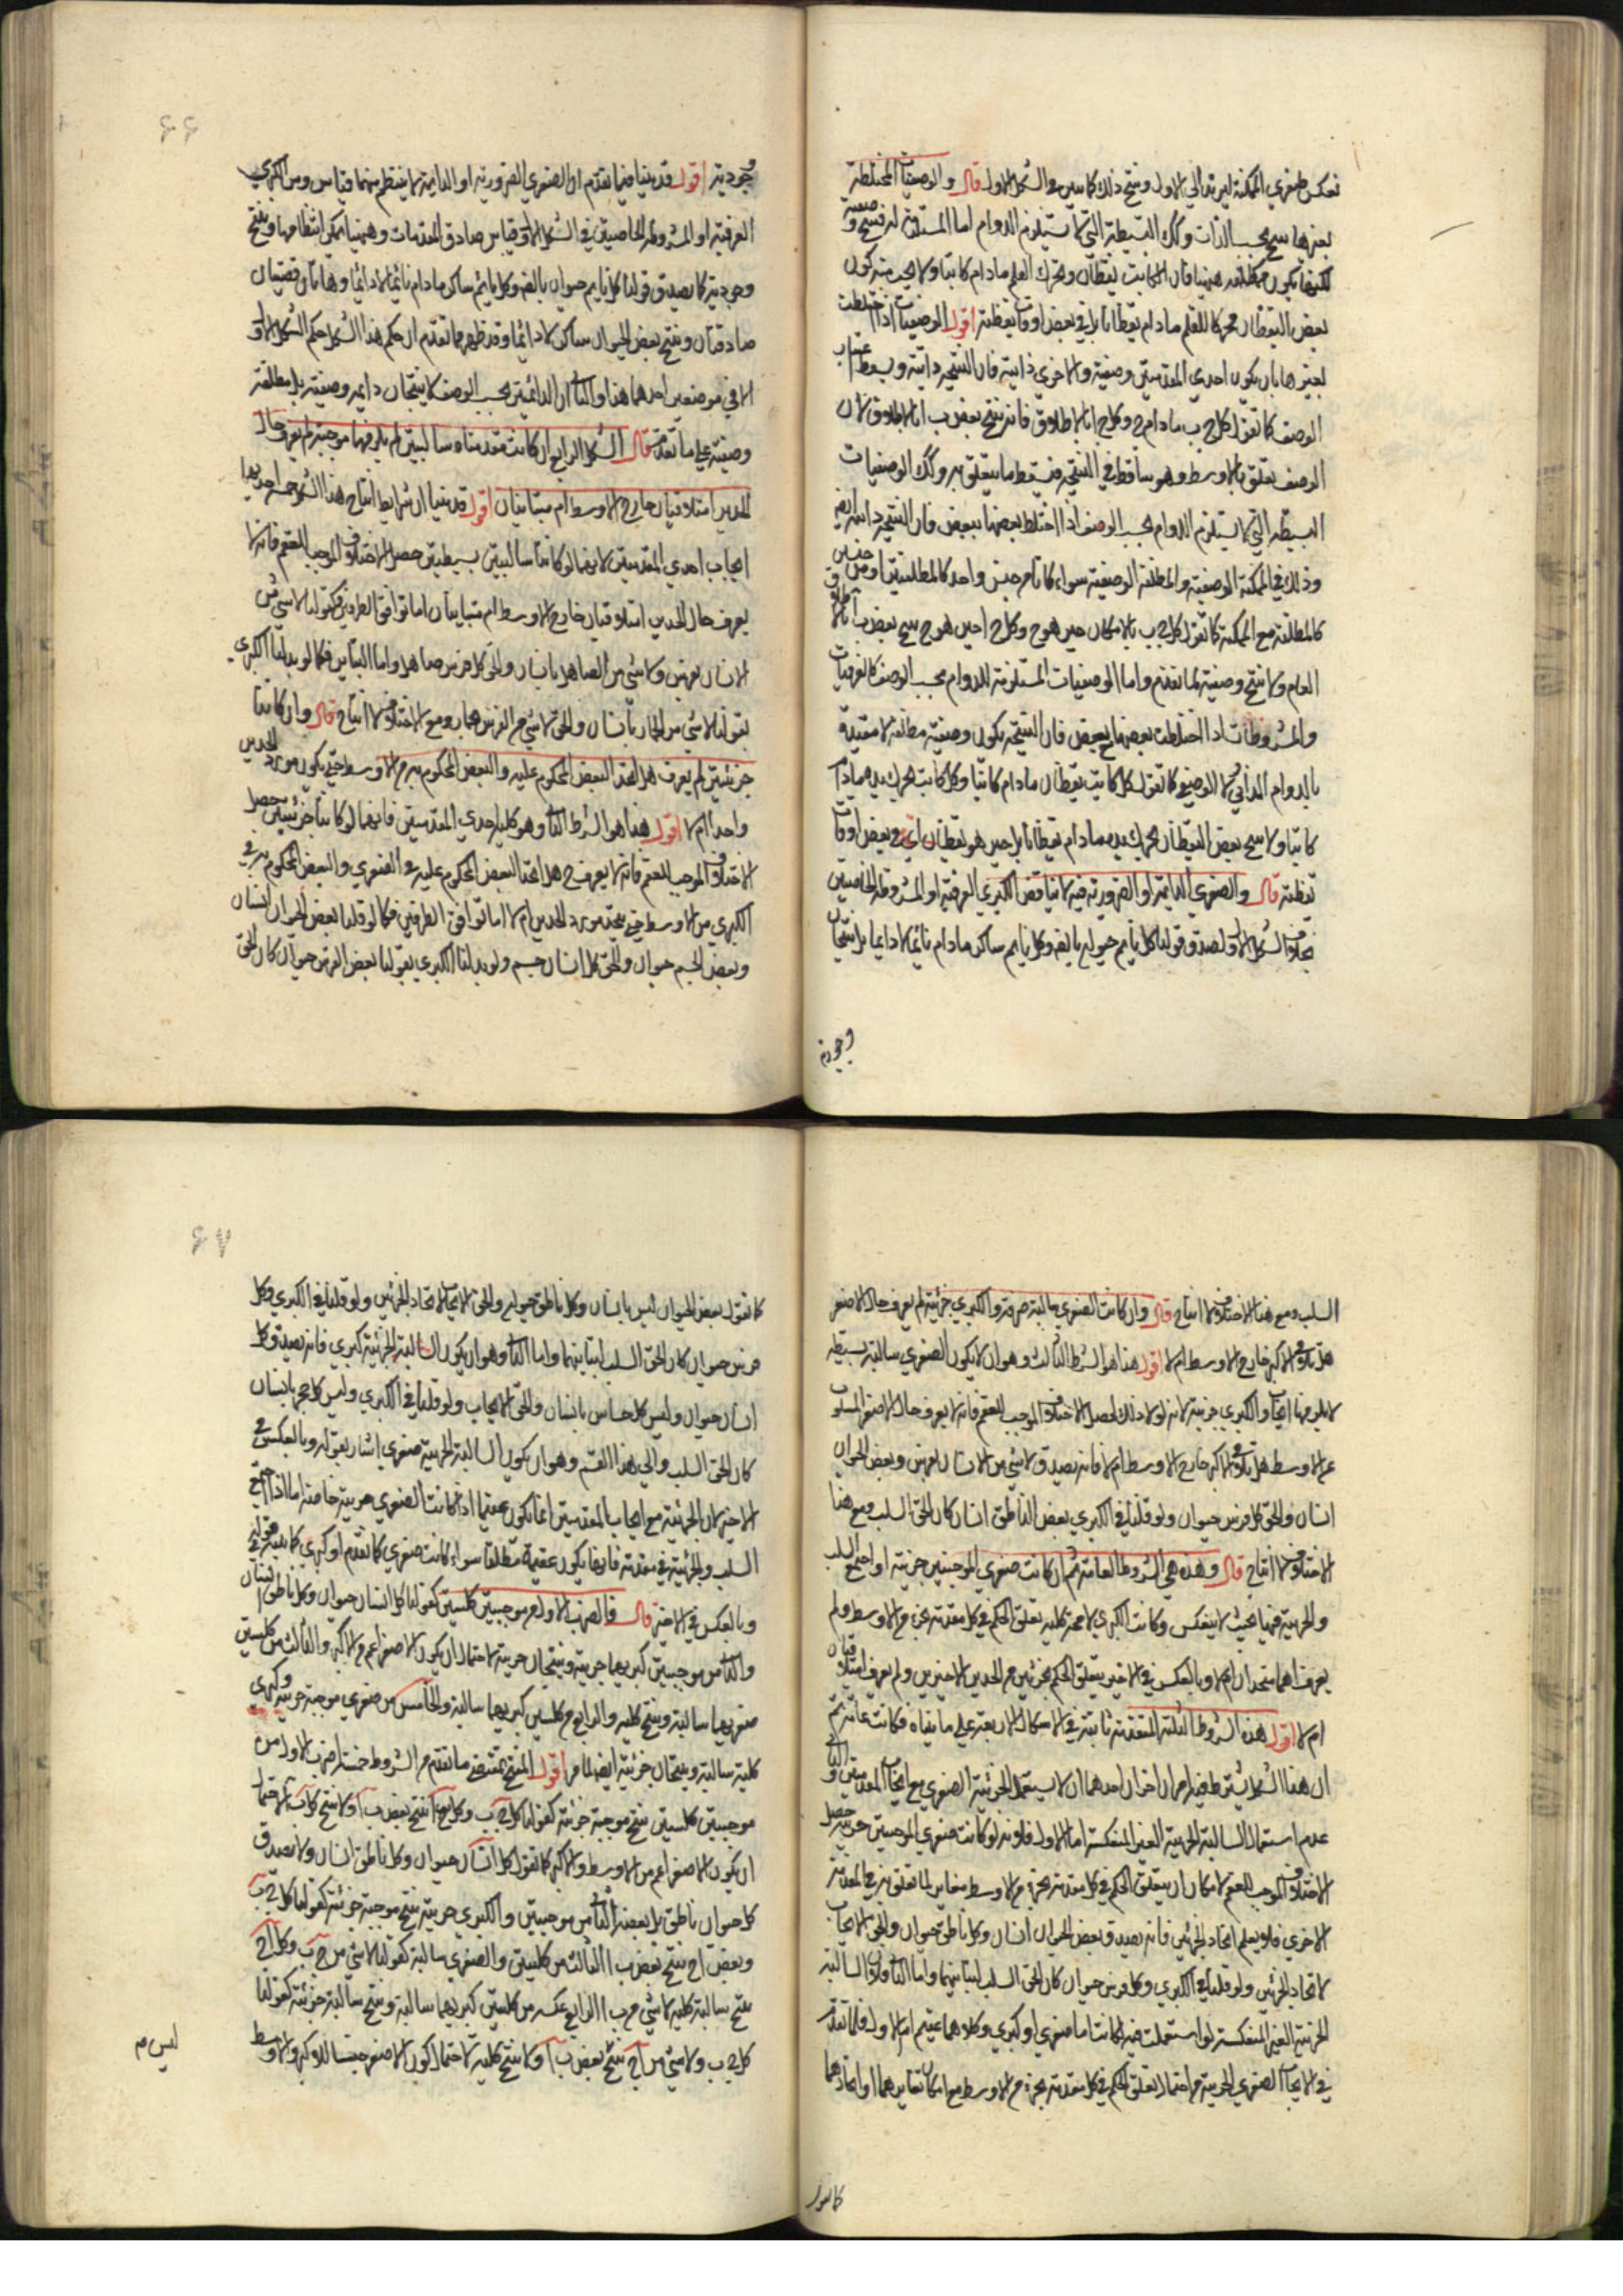 تعكس صغرى الممكنة ليرتد الى الاول وينتج ذلك كما تبين في الشكل الاول قال والوصفيات المختلطة
بغيرها ينتج بحسب الذات وكك البسيطة التي لا تستلزم الدوام اما المستلزمة له فينتج وصفية
لكنها تكون مطلقة هيهنا فان الكاتب يقظان ومحرك القلم مادام كاتبا ولا يجب منه كون
بعض اليقظان محركا للقلم مادام يقظانا بل في بعض اوقات يقظته اقول الوصفيات اذا اختلطت
بغيرها بان يكون احدى المقدمتين وصفية والاخرى ذاتية فان النتيجة ذاتية ويسقط اعتبار
الوصف كما تقول كل ج ب مادام ج وكل ج ا بالاطلاق فانه ينتج بعض ب ا بالاطلاق لان
الوصف يتعلق بالاوسط وهو ساقط في النتيجة فيسقط ما يتعلق به وكك الوصفيات
البسيطة التي لا تستلزم الدوام بحسب الوصف اذا اختلط بعضها ببعض فان النتيجة ذاتية ايضا
وذلك في الممكنة الوصفية والمطلقة الوصفية سواء كانتا من جنس واحد كالمطلقتين او من جنسين
كالمطلقة مع الممكنة كما تقول كل ج ب بالامكان حين هو ج وكل ج ا حين هو ج ينتج بعض ب ا بالاطلاق
العام ولا ينتج وصفية لما تقدم واما الوصفيات المستلزمة للدوام بحسب الوصف كالعرفيات
والمشروطات اذا اختلطت بعضها ببعض فان النتيجة تكون وصفية مطلقة لا مقيدة
بالدوام الذاتي لا الوصفي كما تقول كل كاتب يقظان مادام كاتبا وكل كاتب محرك يده مادام
كاتبا ولا ينتج بعض اليقظان محرك يده مادام يقظانا بل حين هو يقظان اي في بعض اوقات
يقظته قال والصغرى الدائمة او الضرورية فيه لا تناقض الكبرى العرفية او المشروطة الخاصتين
بخلاف الشكل الاول لصدق قولنا كل نايم حيوان بالضرورة وكل نايم ساكن مادام نائما لا دائما بل ينتجان
وجودية
٦٦
وجودية اقول قد بينا فيما تقدم ان الصغرى الضرورية او الدائمة لا ينتظم منهما قياس ومن الكبرى
العرفية او المشروطة الخاصتين في الشكل الاول قياس صادق المقدمات وهيهنا يمكن انتظامها وينتج
وجودية كما يصدق قولنا كل نايم حيوان بالضرورة وكل نايم ساكن مادام نائما لا دائما وهاتان قضيتان
صادقتان وينتج بعض الحيوان ساكن لا دائما وقد ظهر مما تقدم ان حكم هذا الشكل حكم الشكل الاول
الا في موضعين احدهما هذا والثاني ان الدائمتين بحسب الوصف لا ينتجان دايمة وصفية بل مطلقة
وصفية على ما تقدم قال الشكل الرابع ان كانت مقدمتاه سالبتين لم يلزمها موجبة لم يعرف حال
الحدين ايتلاقيان خارج الاوسط ام متباينان اقول قد بينا ان شرايط انتاج هذا الشكل خمسة احديها
ايجاب احدى المقدمتين لانهما لو كانتا سالبتين بسيطتين حصل الاختلاف الموجب للعقم فانه لا
يعرف حال الحدين ايتلاقيان خارج الاوسط ام متباينان اما توافق الطرفين فكقولنا لا شئ من
الانسان بفرس ولا شئ من الصاهل بانسان والحق كل فرس صاهل واما التباين فكما لو بدلنا الكبرى
بقولنا لا شئ من الحمار بانسان والحق لا شئ من الفرس بحمار ومع الاختلاف لا انتاج قال وان كانتا
جزئيتين لم يعرف هل اتحد البعض المحكوم عليه والبعض المحكوم به من الاوسط حتى يكون مورد الحدين
واحدا ام لا اقول هذا هو الشرط الثاني وهو كلية احدى المقدمتين فانهما لو كانتا جزئيتين يحصل
الاختلاف الموجب للعقم فانه لا يعرف ح هل اتحد البعض المحكوم عليه في الصغرى والبعض المحكوم به في
الكبرى من الاوسط حتى يتحد مورد الحدين ام لا اما توافق الطرفين فكما لو قلنا بعض الحيوان انسان
وبعض الجسم حيوان والحق كل انسان جسم ولو بدلنا الكبرى بقولنا بعض الفرس حيوان كان الحق
السلب ومع هذا الاختلاف لا انتاج قال وان كانت الصغرى سالبة صرفة والكبرى جزئية لم يعرف حال الاصغر
هل يلاقي الاكبر خارج الاوسط ام لا اقول هذا هو الشرط الثالث وهو ان لا يكون الصغرى سالبة بسيطة
لا يلزمها ايجاب والكبرى جزئية لانه لولا ذلك لحصل الاختلاف الموجب للعقم فانه لا يعرف حال الاصغر المسلوب
عن الاوسط هل يلاقي الاكبر خارج الاوسط ام لا فانه يصدق لا شئ من الانسان بفرس وبعض الحيوان
انسان والحق كل فرس حيوان ولو قلنا في الكبرى بعض الناطق انسان كان الحق السلب ومع هذا
الاختلاف لا انتاج قال وهذه هي الشروط العامة ثم ان كانت صغرى الموجبتين جزئية او اجتمع السلب
والجزئية فيها بحيث لا ينعكس وكانت الكبرى لا محة كلية يتعلق الحكم في كل مقدمة بجزء من الاوسط ولم
يعرف اهما متحدان ام لا وبالعكس في الاخير يتعلق الحكم بجزئين من الحدين الاخيرين ولم يعرف ايتلاقيان
ام لا اقول هذه الشروط الثلثة المتقدمة ثابتة في الاشكال الاربعة على ما بيناه فكانت عامة ثم
ان هذا الشكل يشترط فيه امران اخران احدهما ان لا يستعمل الجزئية الصغرى مع ايجاب المقدمتين والثاني
عدم استعمال السالبة الجزئية الغير المنعكسة اما الاول فلانه لو كانت صغرى الموجبتين جزئية حصل
الاختلاف الموجب للعقم لامكان ان يتعلق الحكم في كل مقدمة بجزء من الاوسط مغاير لما تعلق به في المقدمة
الاخرى فلا يعلم اتحاد الجزئين فانه يصدق بعض الحيوان انسان وكل ناطق حيوان والحق الايجاب
لاتحاد الجزئين ولو قلنا في الكبرى وكل فرس حيوان كان الحق السلب لتباينهما واما الثاني فلان السالبة
الجزئية الغير المنعكسة لو استعملت فيه لكانت اما صغرى او كبرى وكلاهما عقيم اما الاول فلما تقدم
في الايجاب الصغرى الجزئية من احتمال تعلق الحكم في كل مقدمة بجزء من الاوسط مع امكان تغايرهما او اتحادهما
كما تقول
٦٧
كما تقول بعض الحيوان ليس بانسان وكل ناطق حيوان والحق الايجاب لاتحاد الجزئين ولو قلنا في الكبرى وكل
فرس حيوان كان الحق السلب لتباينهما واما الثاني وهو ان يكون السالبة الجزئية كبرى فانه يصدق كل
انسان حيوان وليس كل حساس بانسان والحق الايجاب ولو قلنا في الكبرى وليس كل حجر بانسان
كان الحق السلب والى هذا القسم وهو ان يكون السالبة الجزئية صغرى اشار بقوله وبالعكس في
الاخير لان الجزئية مع ايجاب المقدمتين انما يكون عقيما اذا كانت الصغرى جزئية خاصة اما اذا اجتمع
السلب والجزئية في مقدمة فانها يكون عقيمة مطلقا سواء كانت صغرى كما تقدم او كبرى كما بينه في قوله
وبالعكس في الاخير قال فالضرب الاول من موجبتين كليتين كقولنا كل انسان حيوان وكل ناطق انسان
والثاني من موجبتين كبريهما جزئية وينتجان جزئية لاحتمال ان يكون الاصغر اعم من الاكبر والثالث من كليتين
صغريهما سالبة وينتج كلية والرابع من كليتين كبريهما سالبة والخامس من صغرى موجبة جزئية وكبرى
كلية سالبة وينتجان جزئية ايضا لما مر اقول المنتج بمقتضى ما تقدم من الشروط خمسة اضرب الاول من
موجبتين كليتين ينتج موجبة جزئية كقولنا كل ج ب وكل ا ج ينتج بعض ب ا ولا ينتج كل ب ا لاحتمال
ان يكون الاصغر اعم من الاوسط والاكبر كما تقول كل انسان حيوان وكل ناطق انسان ولا يصدق
كل حيوان ناطق بل بعضه الثاني من موجبتين والكبرى جزئية ينتج موجبة جزئية كقولنا كل ج ب
وبعض ا ج ينتج بعض ب ا الثالث من كليتين والصغرى سالبة كقولنا لا شئ من ج ب وكل ا ج
ينتج سالبة كلية لا شئ من ب ا الرابع عكسه من كليتين كبريهما سالبة وينتج سالبة جزئية كقولنا
كل ج ب ولا شئ من ا ج ينتج بعض ب ا ولا ينتج كلية لاحتمال كون الاصغر جنسا للاكبر والاوسط
ليس م